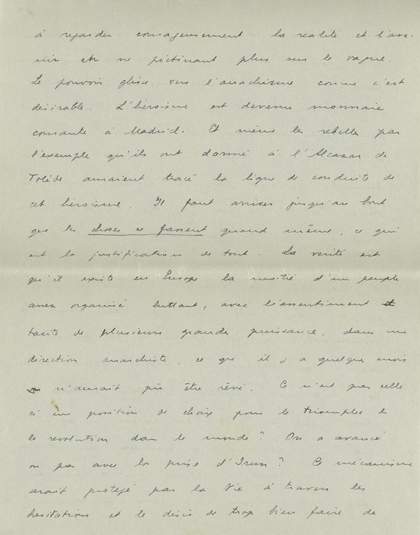 à regarder courageusement la realité et l'ave-
nir et ne piétinant plus sur le vague.
Le pouvoir glisse vers l'anarchisme comme c'est
désirable. L'heroïsme est devenu monnaie
courante à Madrid. Et même les rebelles par
l'exemple qu'ils ont donné à l'Alcazar de
Tolède auraient tracé la ligne de conduite de
cet heroisme. Il faut arriver jusqu'au bout
que les choses se fassent quand même, ce qui
est la justification de tout. La verité est
qu'il existe en Europe la moitié d'un peuple
assez organisé luttant, avec l'assentiment
tacite de plusieurs grandes puissances, dans une
direction anarchiste, ce que il y a quelque mois
n'aurait pu être rêvé. Ce n'est pas celle
ci un position de choix pour le triomphe de
la revolution dans le monde? On a avancé
ou pas avec la prise d'Irun? Ce mécanisme
avait protégé par la Vie à travers les
hesitations et le désir de trop bien faire de